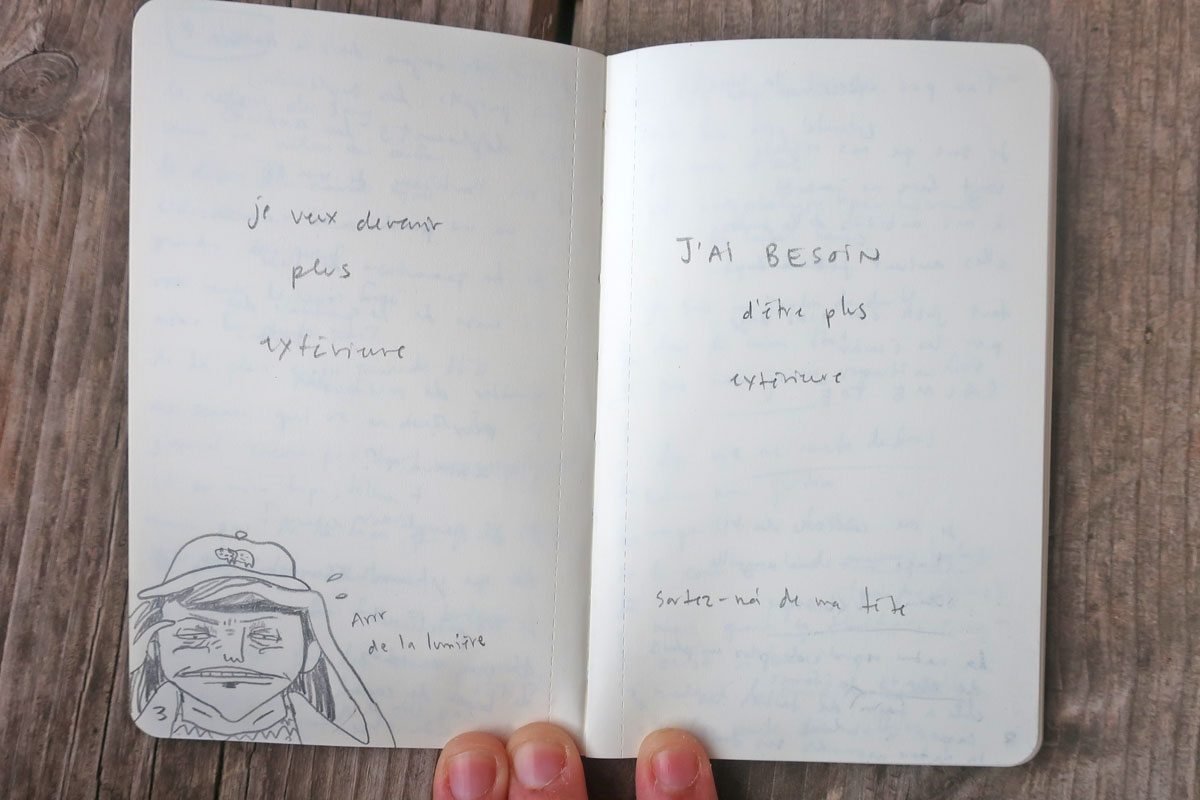 je veux devenir
plus
extérieure
Arrr
de la lumière
J'AI BESOIN
d'être plus
extérieure
sortez-moi de ma tête